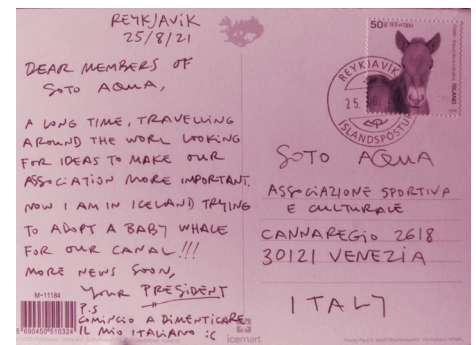 REYKJAVIK
25/8/21
DEAR MEMBERS OF
SOTO AQUA,
A LONG TIME, TRAVELLING
AROUND THE WORL LOOKING
FOR IDEAS TO MAKE OUR
ASSOCIATION MORE IMPORTANT.
NOW I AM IN ICELAND TRYING
TO ADOPT A BABY WHALE
FOR OUR CANAL!!!
MORE NEWS SOON,
YOUR PRESIDENT
P.S
COMINCIO A DIMENTICARE
IL MIO ITALIANO :(
M-11184
5 690450 510324
icemart
50g
ÍSLAND
REYKJAVÍK
25.
ÍSLANDSPÓSTUR
SOTO AQUA
ASSOCIAZIONE SPORTIVA
E CULTURALE
CANNAREGIO 2618
30121 VENEZIA
ITALY